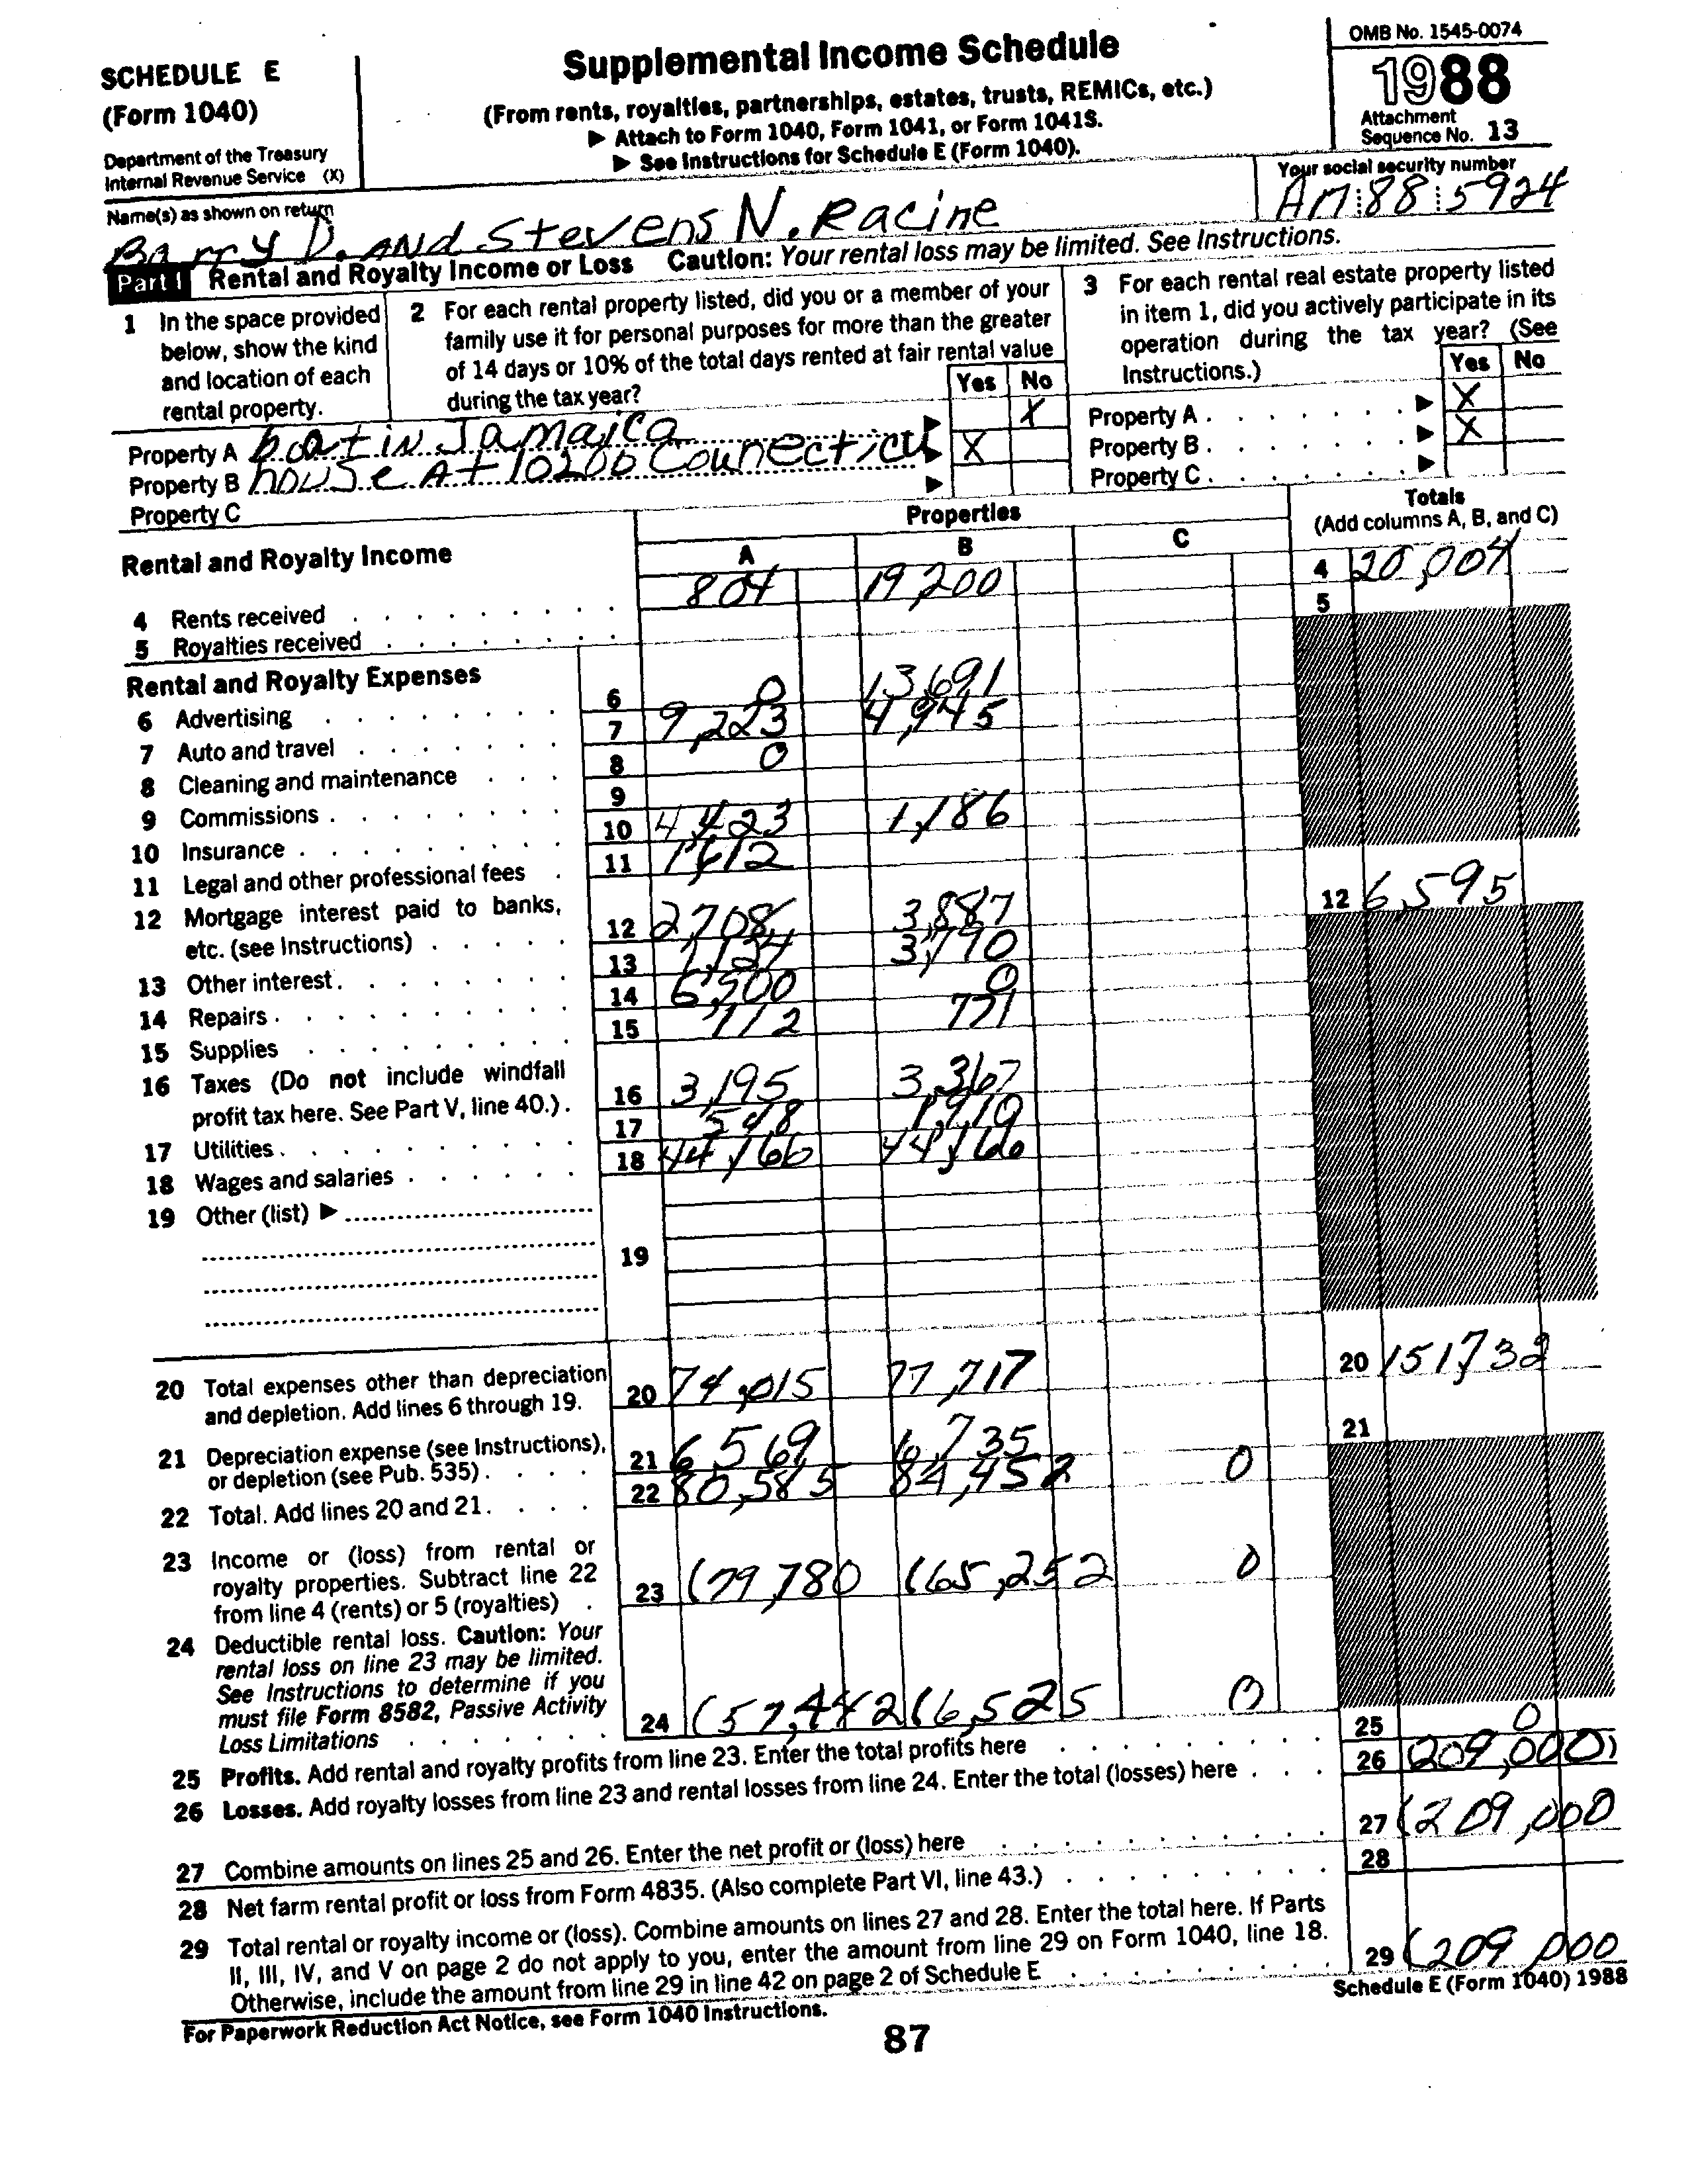 SCHEDULE E
(Form 1040)
Department of the Treasury
Internal Revenue Service (X)
Supplemental Income Schedule
(From rents, royalties, partnerships, estates, trusts, REMICs, etc.)
▶ Attach to Form 1040, Form 1041, or Form 1041S.
▶ See Instructions for Schedule E (Form 1040).
OMB No. 1545-0074
1988
Attachment
Sequence No. 13
Name(s) as shown on return
Barry D. AND Stevens N. Racine
Your social security number
AM 88 5924
Part I Rental and Royalty Income or Loss Caution: Your rental loss may be limited. See Instructions.
1 In the space provided
below, show the kind
and location of each
rental property.
2 For each rental property listed, did you or a member of your
family use it for personal purposes for more than the greater
of 14 days or 10% of the total days rented at fair rental value
during the tax year?
Yes No
3 For each rental real estate property listed
in item 1, did you actively participate in its
operation during the tax year? (See
Instructions.)
Yes No
Property A boat in Jamaica ▶ X
Property B house At 10200 Counecticut ▶ X
Property C ▶
Property A . ▶ X
Property B . ▶ X
Property C . ▶
Rental and Royalty Income
Properties
A B C
Totals
(Add columns A, B, and C)
4 Rents received 804 19,200 4 20,004
5 Royalties received 5
Rental and Royalty Expenses
6 Advertising 6 0 13,691
7 Auto and travel 7 9,223 4,945
8 Cleaning and maintenance 8 0
9 Commissions 9
10 Insurance 10 4,423 1,186
11 Legal and other professional fees 11 1,612
12 Mortgage interest paid to banks,
etc. (see Instructions) 12 2,708 3,887 12 6,595
13 Other interest 13 1,124 3,790
14 Repairs 14 6,500 0
15 Supplies 15 112 771
16 Taxes (Do not include windfall
profit tax here. See Part V, line 40.) 16 3,195 3,367
17 Utilities 17 548 1,910
18 Wages and salaries 18 44,166 44,166
19 Other (list) ▶ 19
20 Total expenses other than depreciation
and depletion. Add lines 6 through 19. 20 74,015 77,717 20 151,732
21 Depreciation expense (see Instructions),
or depletion (see Pub. 535) 21 6,569 6,735 21
22 Total. Add lines 20 and 21 22 80,585 84,452 0
23 Income or (loss) from rental or
royalty properties. Subtract line 22
from line 4 (rents) or 5 (royalties) 23 (79,780 (65,252 0
24 Deductible rental loss. Caution: Your
rental loss on line 23 may be limited.
See Instructions to determine if you
must file Form 8582, Passive Activity
Loss Limitations 24 (57,442 (6,525 0
25 Profits. Add rental and royalty profits from line 23. Enter the total profits here 25 0
26 Losses. Add royalty losses from line 23 and rental losses from line 24. Enter the total (losses) here 26 (209,000)
27 Combine amounts on lines 25 and 26. Enter the net profit or (loss) here 27 (209,000
28 Net farm rental profit or loss from Form 4835. (Also complete Part VI, line 43.) 28
29 Total rental or royalty income or (loss). Combine amounts on lines 27 and 28. Enter the total here. If Parts
II, III, IV, and V on page 2 do not apply to you, enter the amount from line 29 on Form 1040, line 18.
Otherwise, include the amount from line 29 in line 42 on page 2 of Schedule E 29 (209,000
For Paperwork Reduction Act Notice, see Form 1040 Instructions.
Schedule E (Form 1040) 1988
87